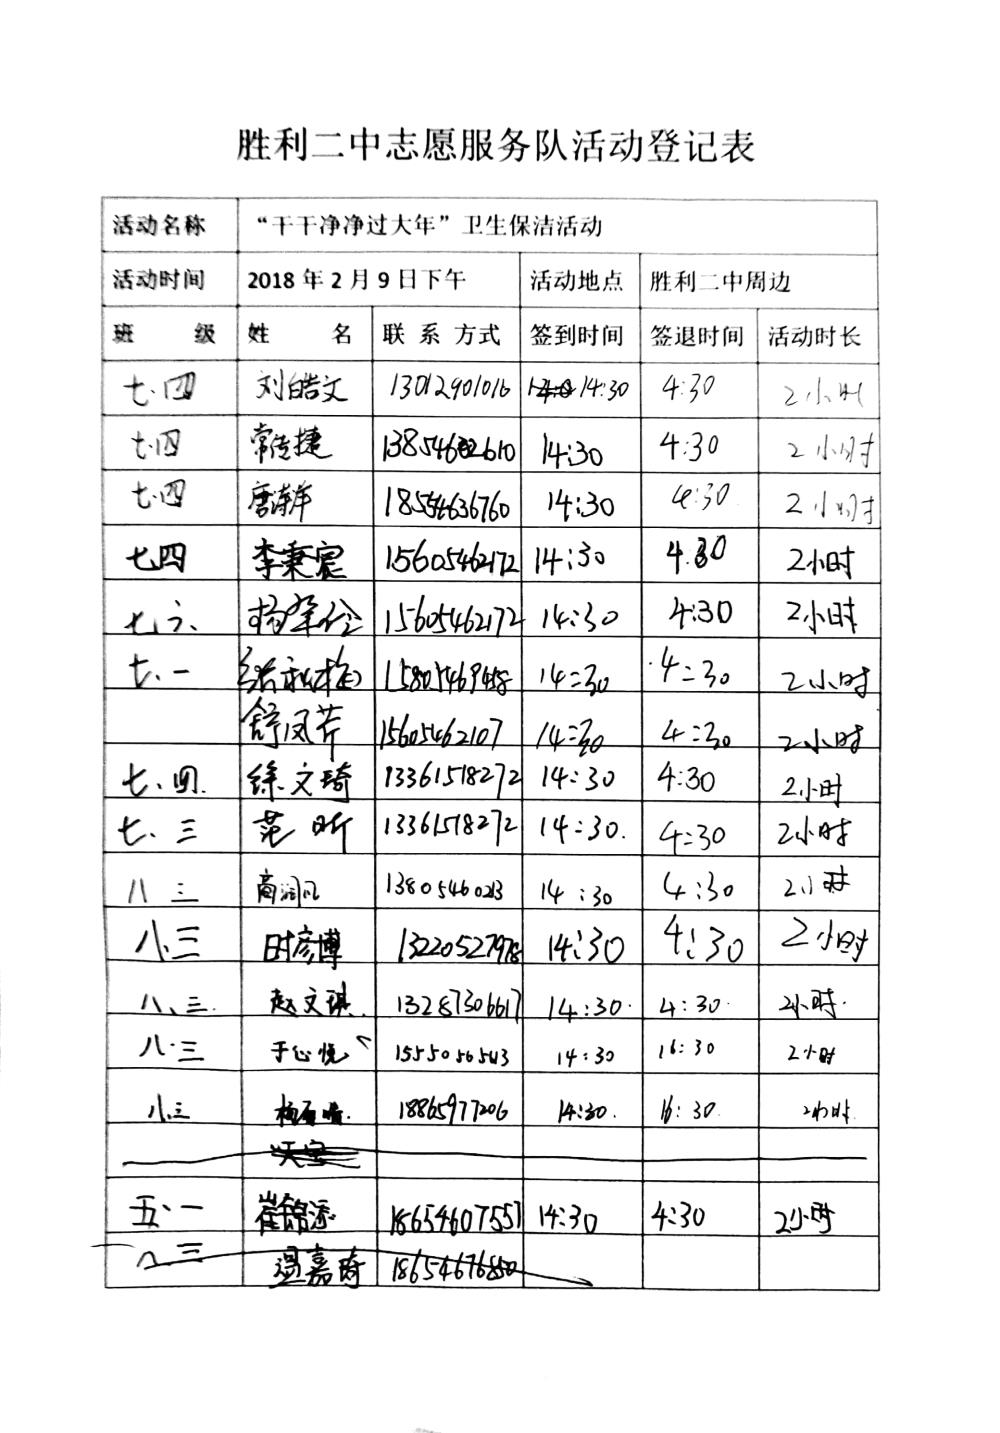 胜利二中志愿服务队活动登记表
活动名称 “干干净净过大年”卫生保洁活动
活动时间 2018年2月9日下午 活动地点 胜利二中周边
班 级 姓 名 联系方式 签到时间 签退时间 活动时长
七.四 刘皓文 13012901016 14:30 4:30 2小时
七.四 常传捷 14:30 4:30 2小时
七.四 唐 18554636760 14:30 4:30 2小时
七四 李秉宸 15605462172 14:30 4.30 2小时
七六、 杨 15605462172 14:30 4:30 2小时
七.一 14:30 4:30 2小时
舒凤芹 15605462107 14:30 4:30 2小时
七.四. 徐文琦 13361518272 14:30 4:30 2小时
七.三 范昕 13361518272 14:30. 4:30 2小时
八三 商润凡 13805460213 14:30 4:30 2小时
八.三 时彦博 13220527978 14:30 4:30 2小时
八、三. 赵文琪 13287306617 14:30. 4:30. 2小时.
八.三 于心悦 14:30 16:30 2小时
八.三 18865977206 14:30. 16:30. 2小时.
五.一 崔锦添 18654607557 14:30 4:30 2小时
八三 温嘉琦 18654676850